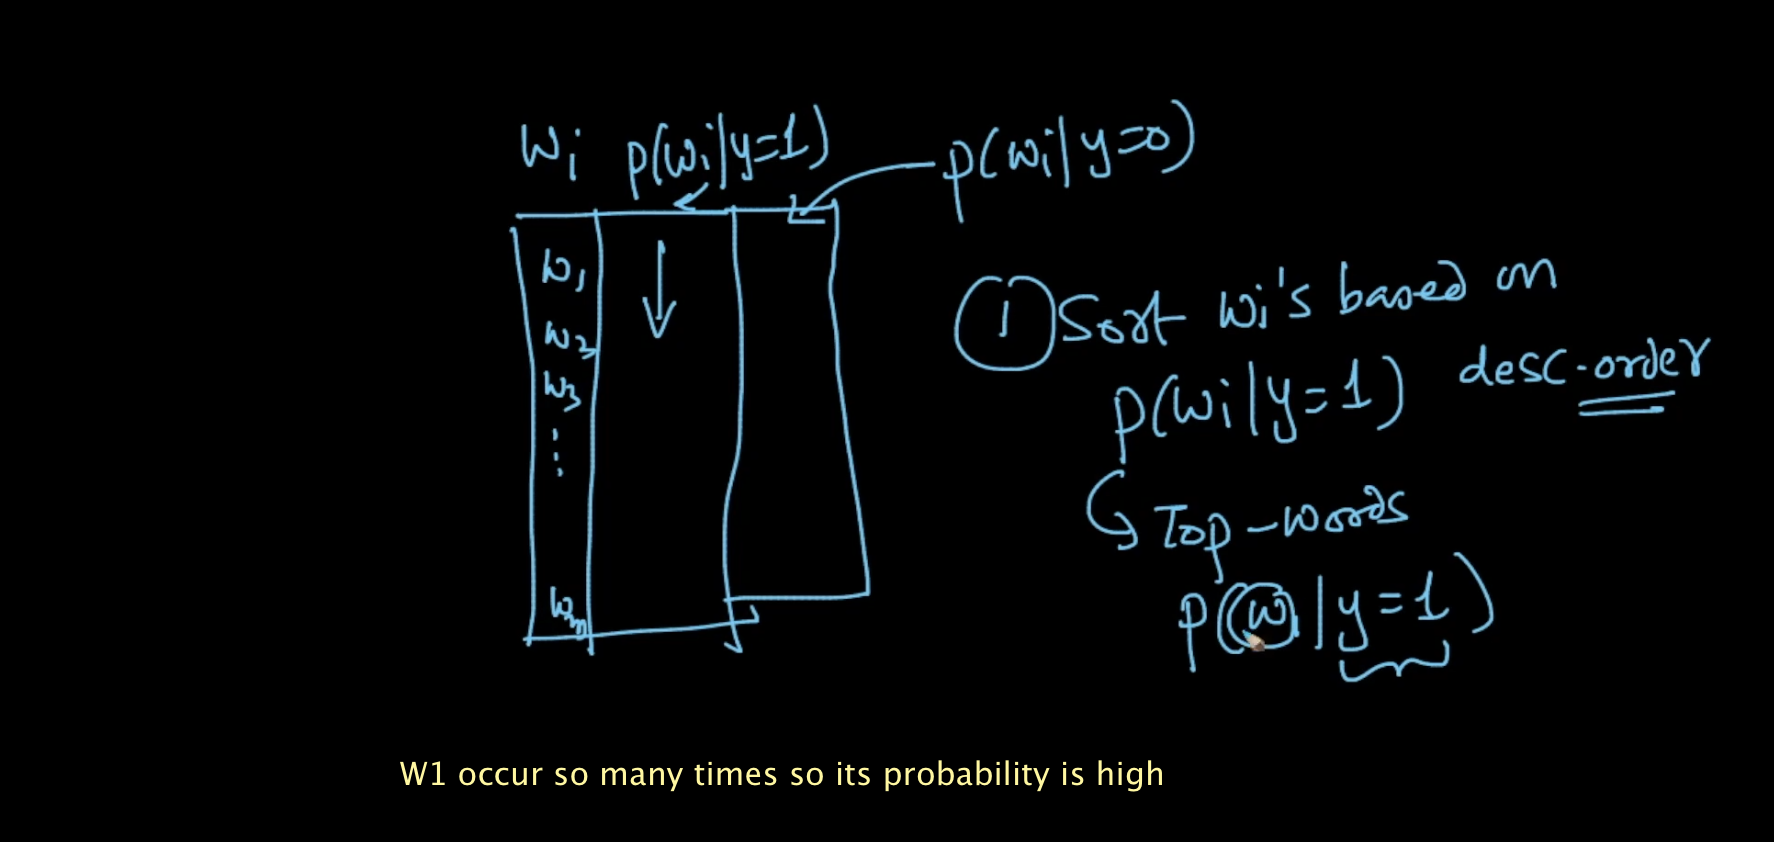 wi p(wi|y=1) p(wi|y=0)
w1
w2
w3
⋮
wm
1 Sort wi's based on
p(wi|y=1) desc-order
Top-words
p(wi|y=1)
W1 occur so many times so its probability is high